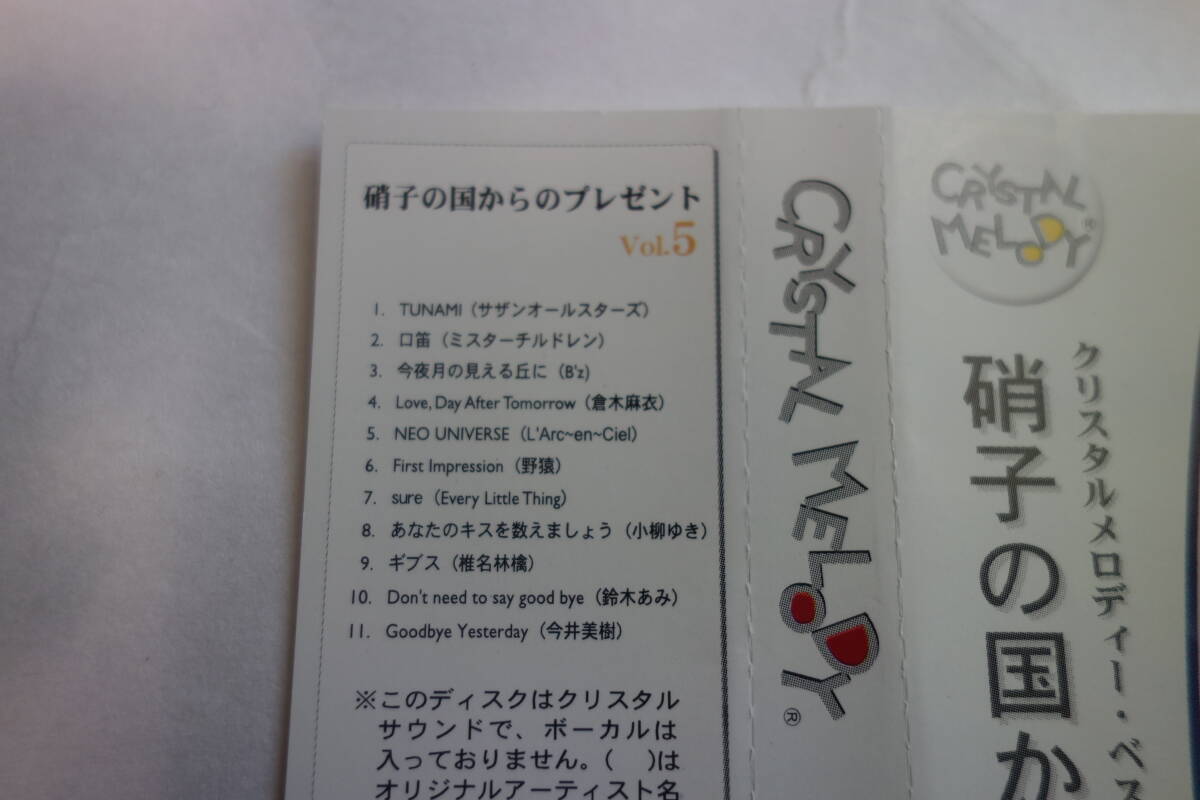 硝子の国からのプレゼント
Vol.5
1. TUNAMI（サザンオールスターズ）
2. 口笛（ミスターチルドレン）
3. 今夜月の見える丘に（B'z）
4. Love, Day After Tomorrow（倉木麻衣）
5. NEO UNIVERSE（L'Arc~en~Ciel）
6. First Impression（野猿）
7. sure（Every Little Thing）
8. あなたのキスを数えましょう（小柳ゆき）
9. ギブス（椎名林檎）
10. Don't need to say good bye（鈴木あみ）
11. Goodbye Yesterday（今井美樹）
※このディスクはクリスタル
サウンドで、ボーカルは
入っておりません。(　)は
オリジナルアーティスト名
CRYSTAL MELODY®
CRYSTAL
MELODY®
クリスタルメロディー・ベス
硝子の国か